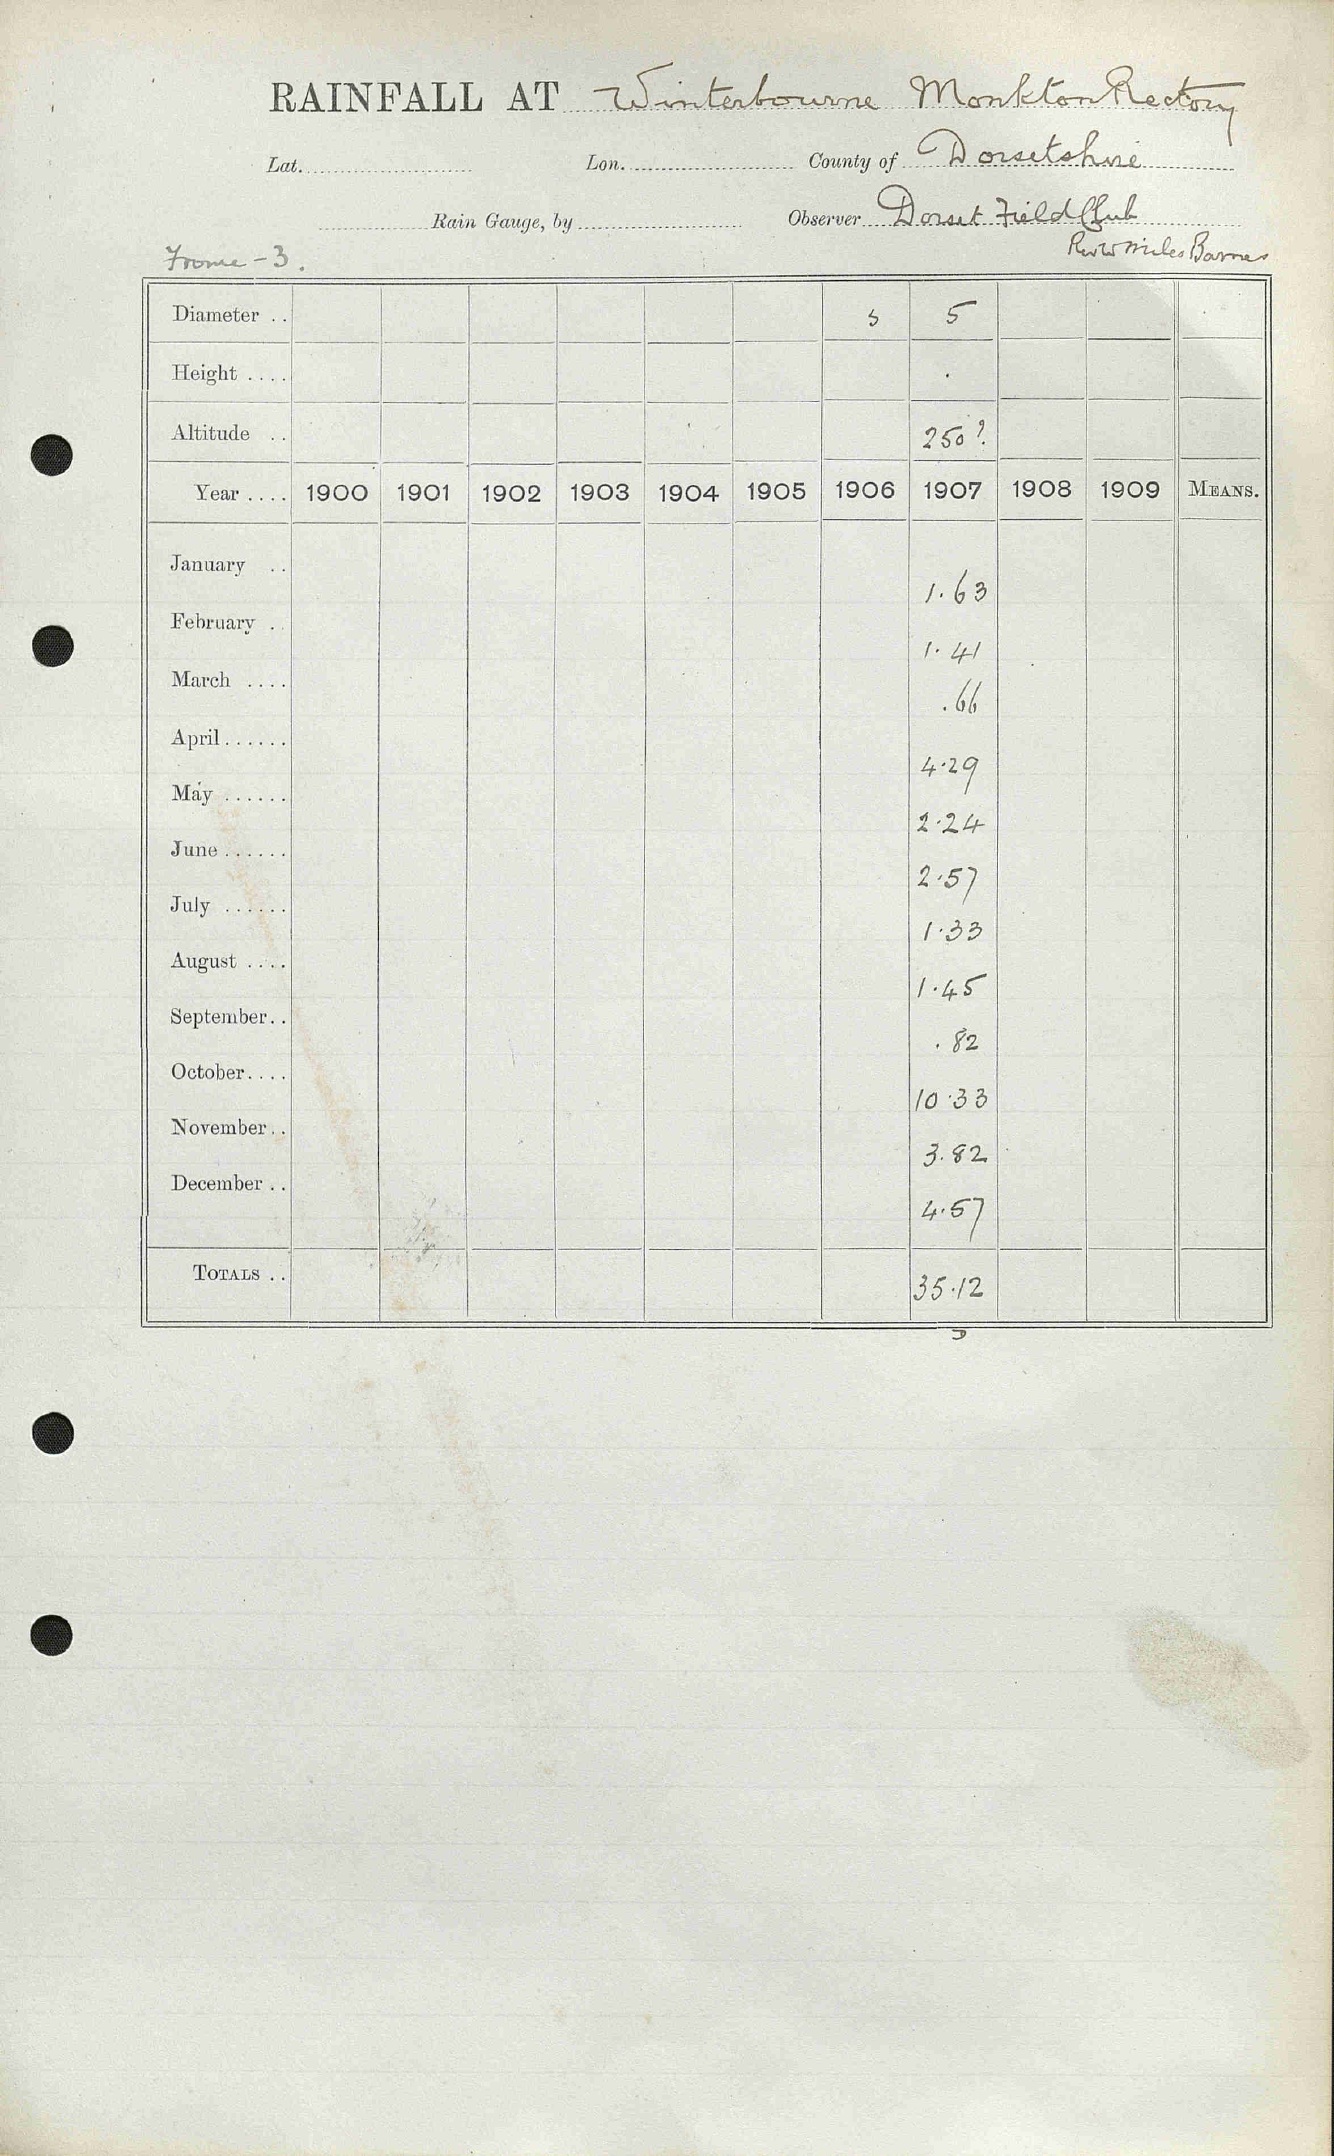 RAINFALL AT Winterbourne Monkton Rectory
Lat. Lon. County of Dorsetshire
Rain Gauge, by Observer Dorset Field Club
Frome - 3. Rev W Miles Barnes
Diameter .. 5 5
Height ....
Altitude .. 250 ?
Year .... 1900 1901 1902 1903 1904 1905 1906 1907 1908 1909 MEANS.
January .. 1.63
February .. 1.41
March .... .66
April ...... 4.29
May ...... 2.24
June ...... 2.57
July ...... 1.33
August .... 1.45
September .. .82
October .... 10.33
November .. 3.82
December .. 4.57
TOTALS .. 35.12